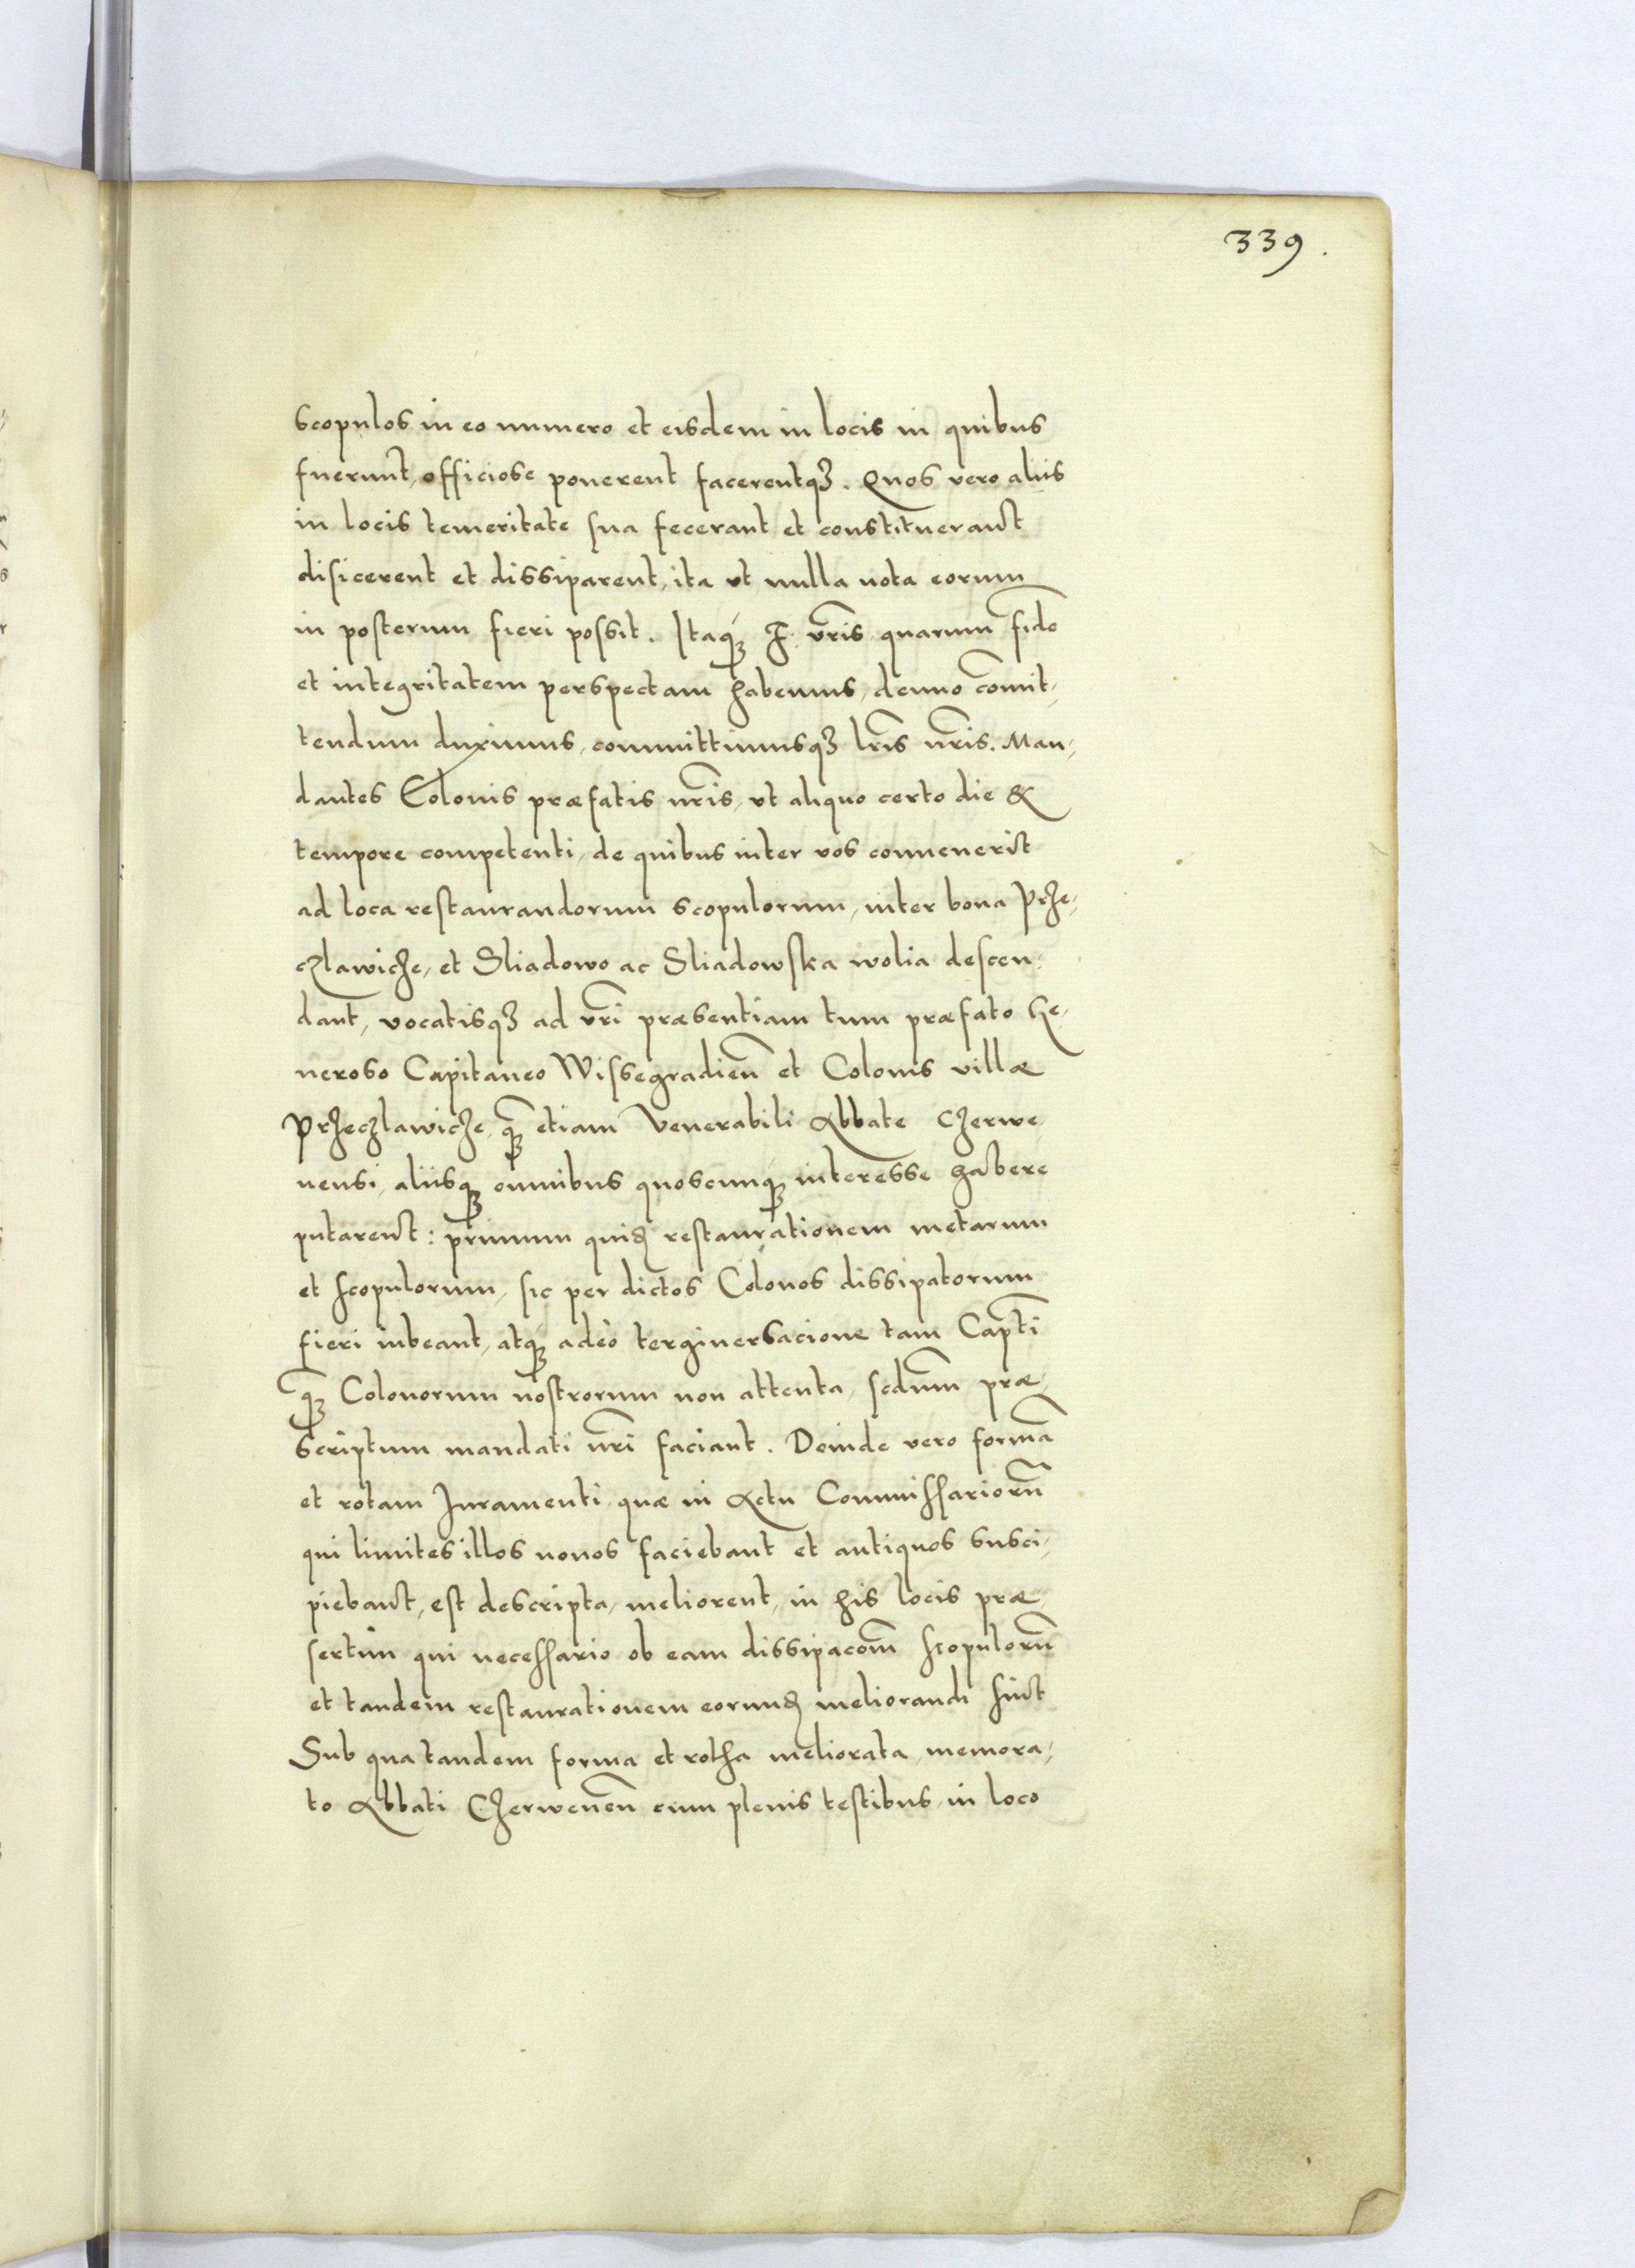 339.
scopulos in eo numero et eisdem in locis in quibus
fuerunt, officiose ponerent facerentq3. Quos vero aliis
in locis temeritate sua fecerant et constituerant
disicerent et dissiparent, ita ut nulla nota eorum
in posterum fieri possit. Itaq3 F. vr̃is quarum fidẽ
et integritatem perspectam habemus, denuo com̃it,
tendum duximus, committimusq3 lr̃is nr̃is. Man,
dantes Colonis præfatis nr̃is, ut aliquo certo die &
tempore competenti, de quibus inter vos convenerit
ad loca restaurandorum scopulorum, inter bona Prze,
czlawicze, et Sliadowo ac Sliadowska wolia descen,
dant, vocatisq3 ad vr̃i præsentiam tum præfato Ge,
neroso Capitaneo Wissegradien̄ et Colonis villæ
Przeczlawicze, q̃3 etiam Venerabili Abbate Czerwe
nensi, aliisq3 omnibus quoscunq3 interesse habere
putarent: primum quid restaurationem metarum
et scopulorum, sic per dictos Colonos dissipatorum
fieri iubeant, atq3 adeò terginersacione tam Capt̃i
q̃3 Colonorum nostrorum non attenta, sedum̄ præ,
scriptum mandati nr̃i faciant. Deinde vero formã
et rotam Juramenti, quæ in Actu Commissariorũ
qui limites illos novos faciebant et antiquos susci,
piebant, est descripta, meliorent, in his locis præ,
sertim qui necessario ob eam dissipacom̄ scopulorũ
et tandem restaurationem eorund meliorandi sint
Sub qua tandem forma et rotha meliorata, memora,
to Abbati Czerwenen̄ cum plenis testibus, in loco